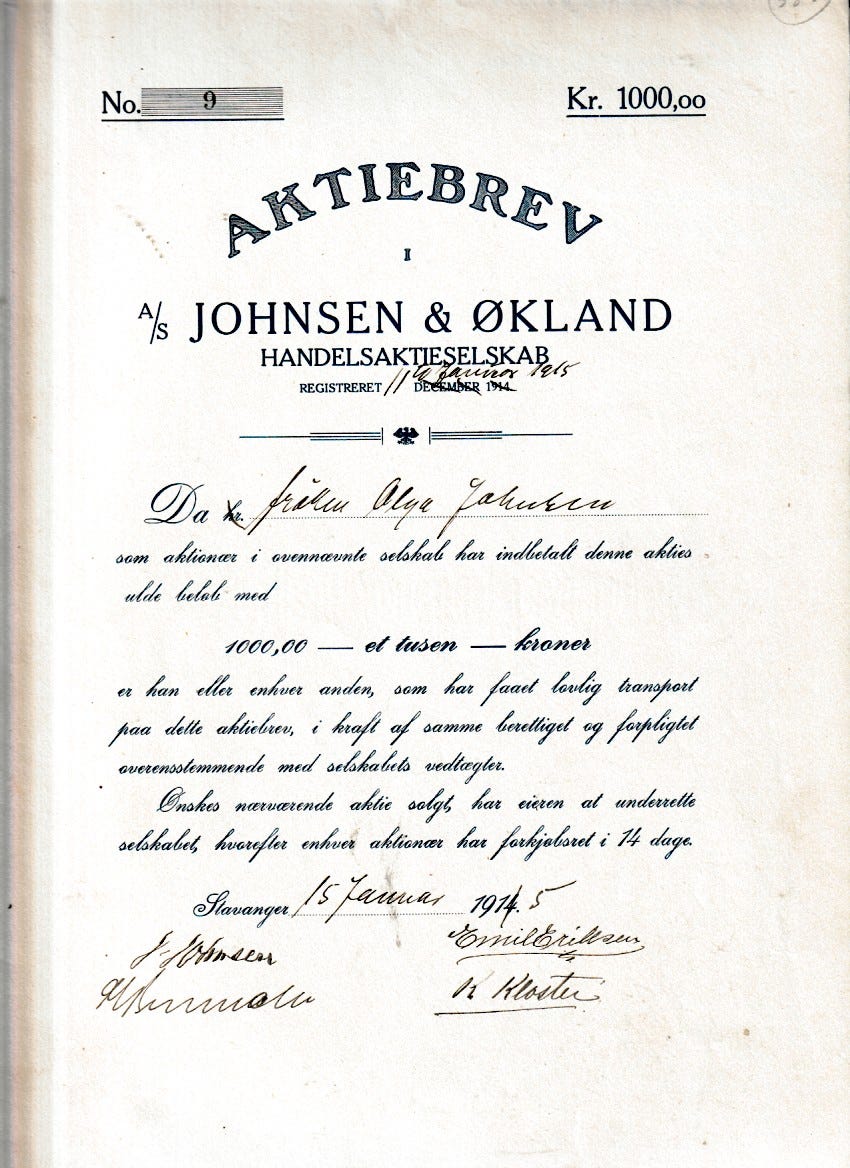 No. 9
Kr. 1000,00
AKTIEBREV
I
A/S JOHNSEN & ØKLAND
HANDELSAKTIESELSKAB
REGISTRERET 11 Januar 1915 DECEMBER 1914
Da hr. frøken Olga Johnsen
som aktionær i ovennævnte selskab har indbetalt denne akties
ulde beløb med
1000,00 — et tusen — kroner
er han eller enhver anden, som har faaet lovlig transport
paa dette aktiebrev, i kraft af samme berettiget og forpligtet
overensstemmende med selskabets vedtægter.
Ønskes nærværende aktie solgt, har eieren at underrette
selskabet, hvorefter enhver aktionær har forkjøbsret i 14 dage.
Stavanger 15 Januar 1914. 5
Johnsen
Emil Eriksen
K Kloster